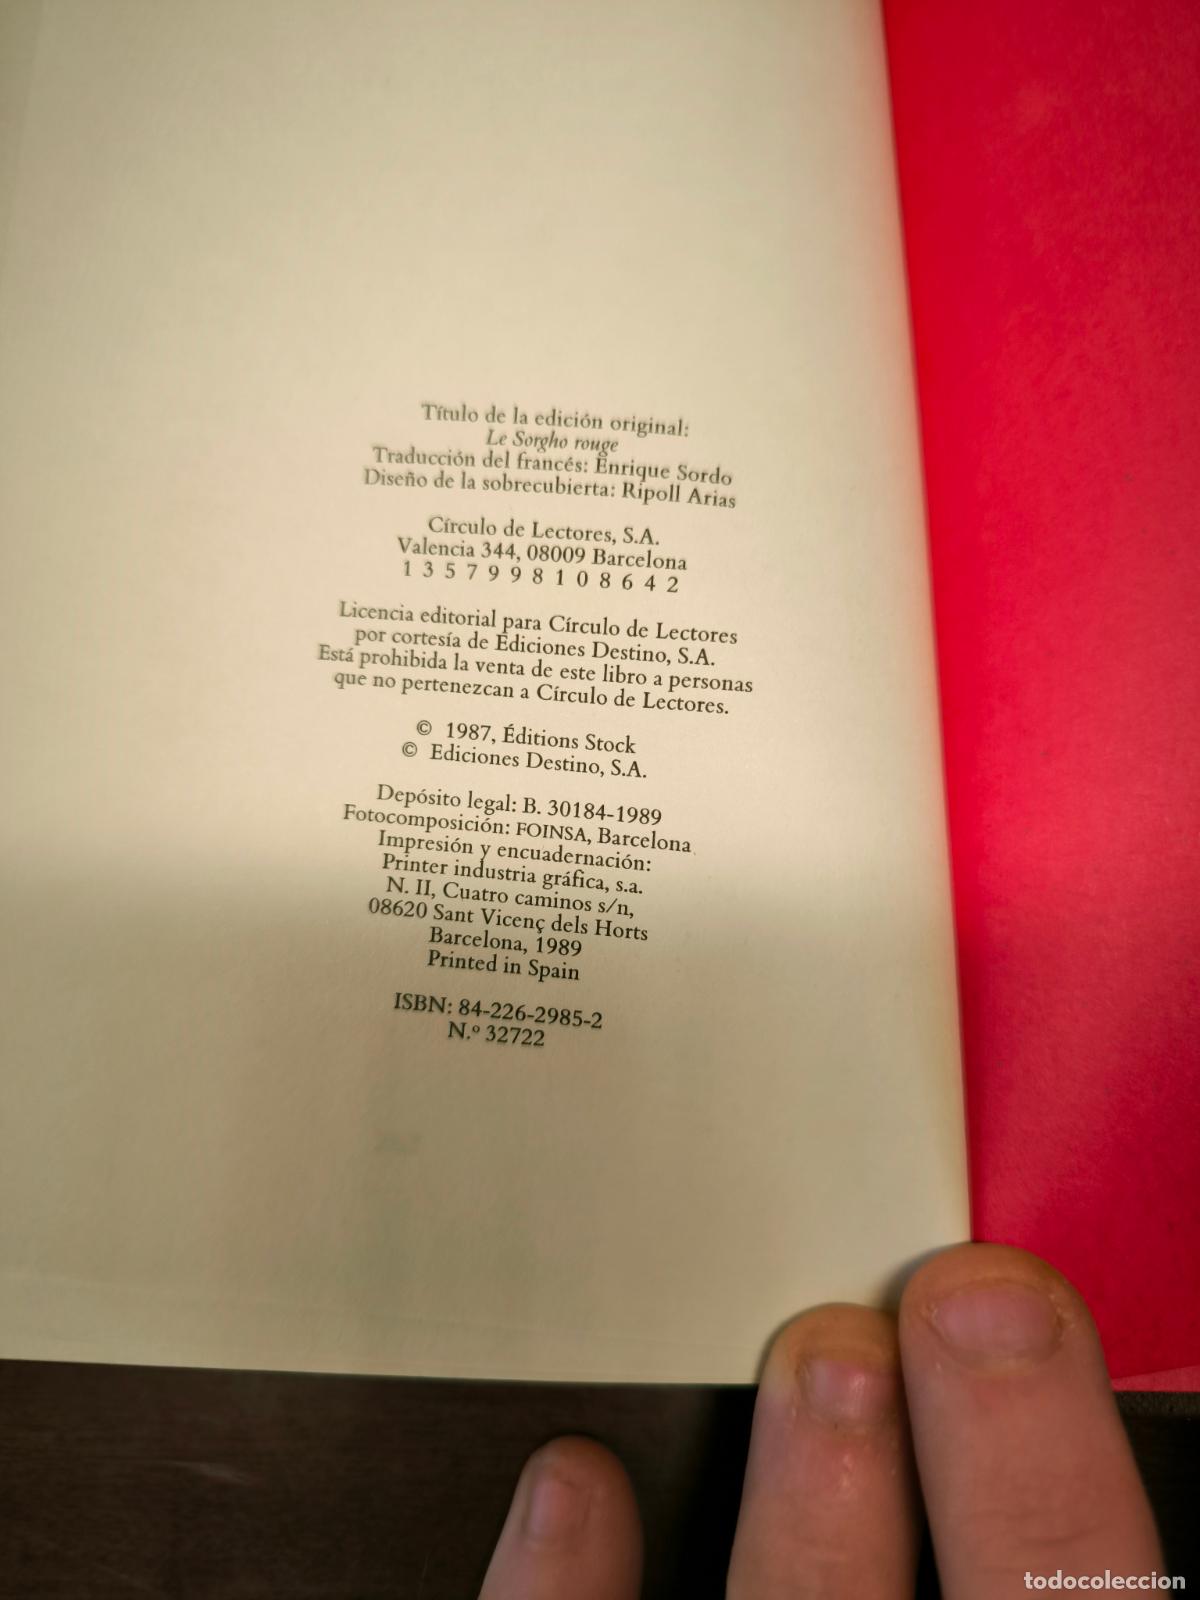 Título de la edición original:
Le Sorgho rouge
Traducción del francés: Enrique Sordo
Diseño de la sobrecubierta: Ripoll Arias
Círculo de Lectores, S.A.
Valencia 344, 08009 Barcelona
1 3 5 7 9 9 8 1 0 8 6 4 2
Licencia editorial para Círculo de Lectores
por cortesía de Ediciones Destino, S.A.
Está prohibida la venta de este libro a personas
que no pertenezcan a Círculo de Lectores.
© 1987, Éditions Stock
© Ediciones Destino, S.A.
Depósito legal: B. 30184-1989
Fotocomposición: FOINSA, Barcelona
Impresión y encuadernación:
Printer industria gráfica, s.a.
N. II, Cuatro caminos s/n,
08620 Sant Vicenç dels Horts
Barcelona, 1989
Printed in Spain
ISBN: 84-226-2985-2
N.º 32722
todocoleccion